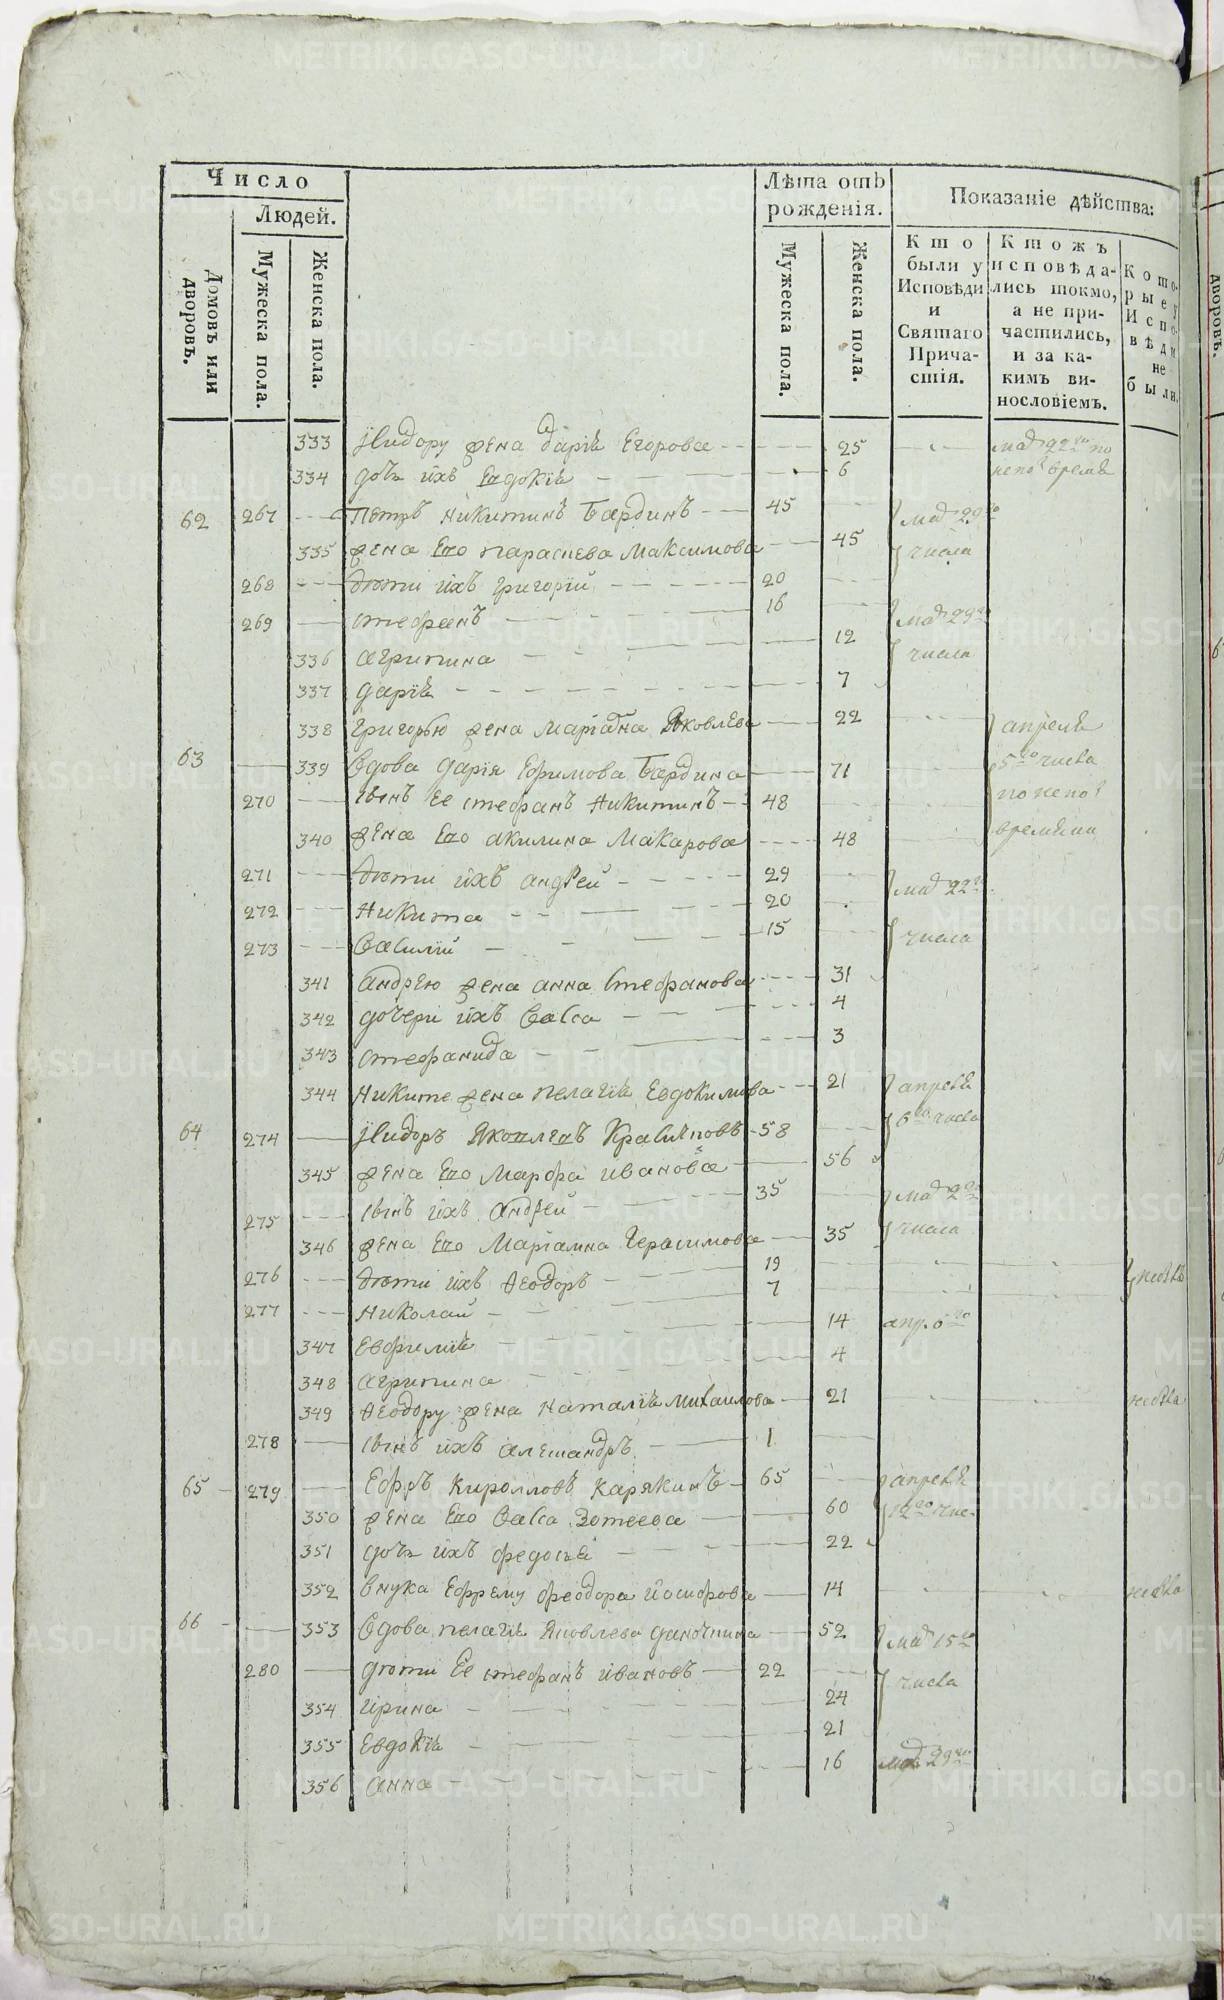 Число
Людей.
Домовъ или дворовъ.
Мужеска пола.
Женска пола.
Лѣта отъ рожденія.
Мужеска пола.
Женска пола.
Показаніе дѣйства:
Кто были у Исповѣди и Святаго Прича-стія.
Ктожъ исповѣда-лись токмо, а не при-частились, и за ка-кимъ ви-нословіемъ.
Кото-рые у Испо-вѣди не были.
333 жена дарія Егорова 25 22
334 дочь ихъ Евдокія 6 время
62 267 Петръ Никитинъ Бардинъ 45 маія 29го
335 жена Его параскева Максимова 45 числа
268 дѣти ихъ григорій 20
269 стефанъ 16 маія 29го
336 агрипина 12 числа
337 дарія 7
338 григорью жена Маріамна Яковлева 22 апреля
63 339 Вдова дарія Ефимова Бардина 71 5го числа
270 сынъ Ее стефанъ Никитинъ 48
340 жена Его акилина Макарова 48 времяни
271 дѣти ихъ андрей 29 маія 22го
272 Никита 20
273 Василий 15 числа
341 андрею жена анна Стефанова 31
342 дочери ихъ Васса 4
343 стефанида 3
344 Никите жена пелагія Евдокимова 21 апреля
64 274 Яковлевъ 58 6го числа
345 жена Его Марфа иванова 56
275 сынъ ихъ андрей 35 маія
346 жена Его Маріамна Герасимова 35 числа
276 дѣти ихъ Ѳеодоръ 19
277 Николай 7
347 Евфимія 14 апр. 6го
348 агрипина 4
349 Ѳеодору жена наталія михаилова 21
278 сынъ ихъ александръ 1
65 279 Ефремъ Кирилловъ Карякинъ 65 апреля
350 жена Его Васса Зотеева 60 12го чис.
351 дочь ихъ федосья 22
352 внука Ефрему феодора иосифова 14
66 353 Вдова пелагия Яковлева 52 маія 15го
280 дѣти Ее стефанъ ивановъ 22 числа
354 ирина 24
355 Евдокія 21
356 анна 16 29го
METRIKI.GASO-URAL.RU